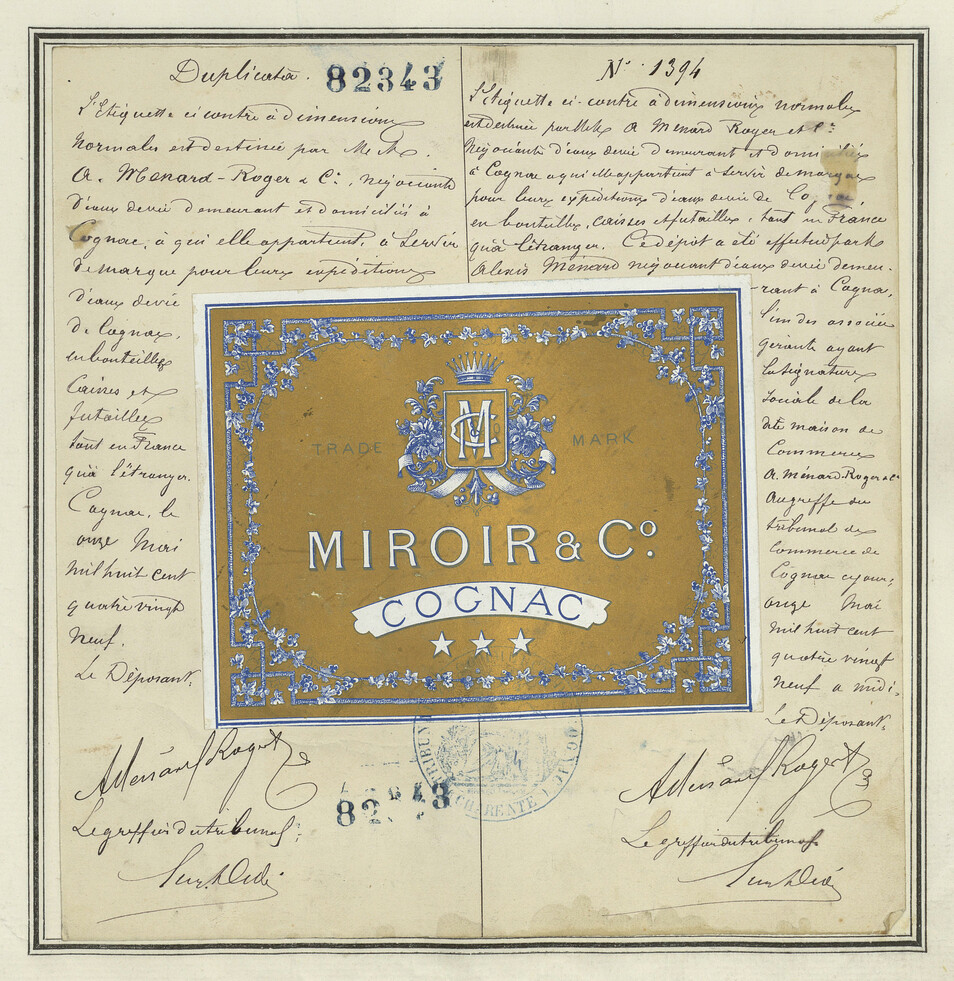 Duplicata. 82343
L'Etiquette ci contre à dimensions
normales est destinée par M.M.
A. Menard-Roger & Cie, négociants
d'eaux de vie demeurant et domiciliés à
Cognac, à qui elle appartient, à servir
de marque pour leurs expéditions
d'eaux de vie
de Cognac,
en bouteilles
Caisses et
futailles
tant en France
qu'à l'étranger.
Cognac, le
onze Mai
mil huit cent
quatre vingt
neuf.
Le Déposant.
A Menard Roger & Cie
Le greffier du tribunal
N° 1394
L'Etiquette ci-contre à dimensions normales
est destinée par MM. A Menard Roger et Cie
Négociants d'eaux de vie demeurant et domiciliés
à Cognac a qui elle appartient à servir de marque
pour leurs expéditions d'eaux de vie de Co
en bouteilles, caisses et futailles, tant en France
qu'à l'étranger. Ce dépôt a été effectué par M.
Alexis Ménard négociant d'eaux de vie demeu-
rant à Cognac,
l'un des associés
gérants ayant
la signature
sociale de la
dite maison de
Commerce
A. Ménard-Roger & Cie
au greffe du
tribunal de
Commerce de
Cognac ce jour,
onze Mai
mil huit cent
quatre vingt
neuf a midi.
Le Déposant.
A Ménard Roger & Cie
Le greffier du tribunal
TRADE MARK
MC
MIROIR & Co.
COGNAC
CHARENTE